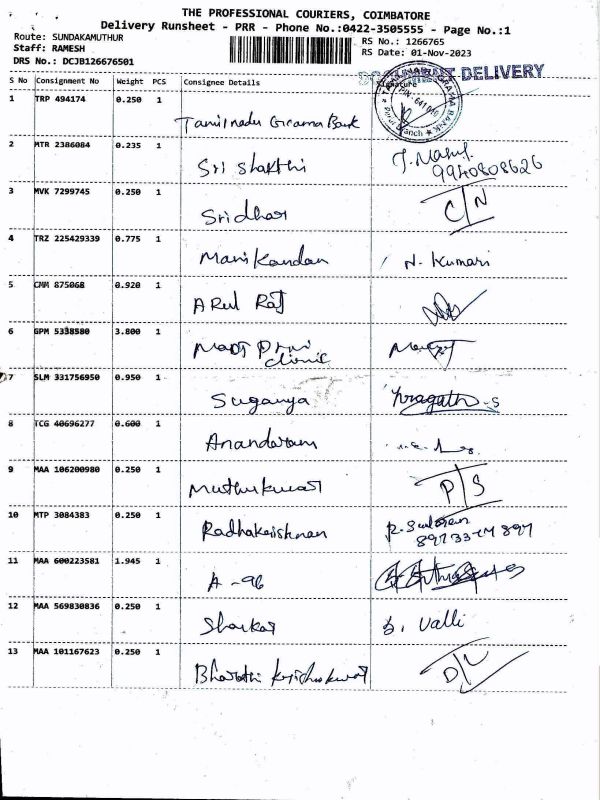 THE PROFESSIONAL COURIERS, COIMBATORE
Delivery Runsheet - PRR - Phone No.:0422-3505555 - Page No.:1
Route: SUNDAKAMUTHUR
Staff: RAMESH
DRS No.: DCJB126676501
RS No.: 1266765
RS Date: 01-Nov-2023
DELIVERY
S No Consignment No Weight PCS Consignee Details Signature
1 TRP 494174 0.250 1 Tamilnadu Grama Bank
2 MTR 2386084 0.235 1 Sri Shakthi
9940808626
3 MVK 7299745 0.250 1 Sridhar C/N
4 TRZ 225429339 0.775 1 Manikandan N. Kumari
5 CMM 875068 0.920 1 ARul Raj
6 GPM 5338580 3.800 1
clinic
7 SLM 331756950 0.950 1 Suganya Pragathi-S
8 TCG 40696277 0.600 1 Anandaram
9 MAA 106200980 0.250 1 Muthukumar P/S
10 MTP 3084383 0.250 1 Radhakrishnan
11 MAA 600223581 1.945 1 A-96
12 MAA 569830836 0.250 1 Shankar S. Valli
13 MAA 101167623 0.250 1 Bharathi Krishnakumar D/L